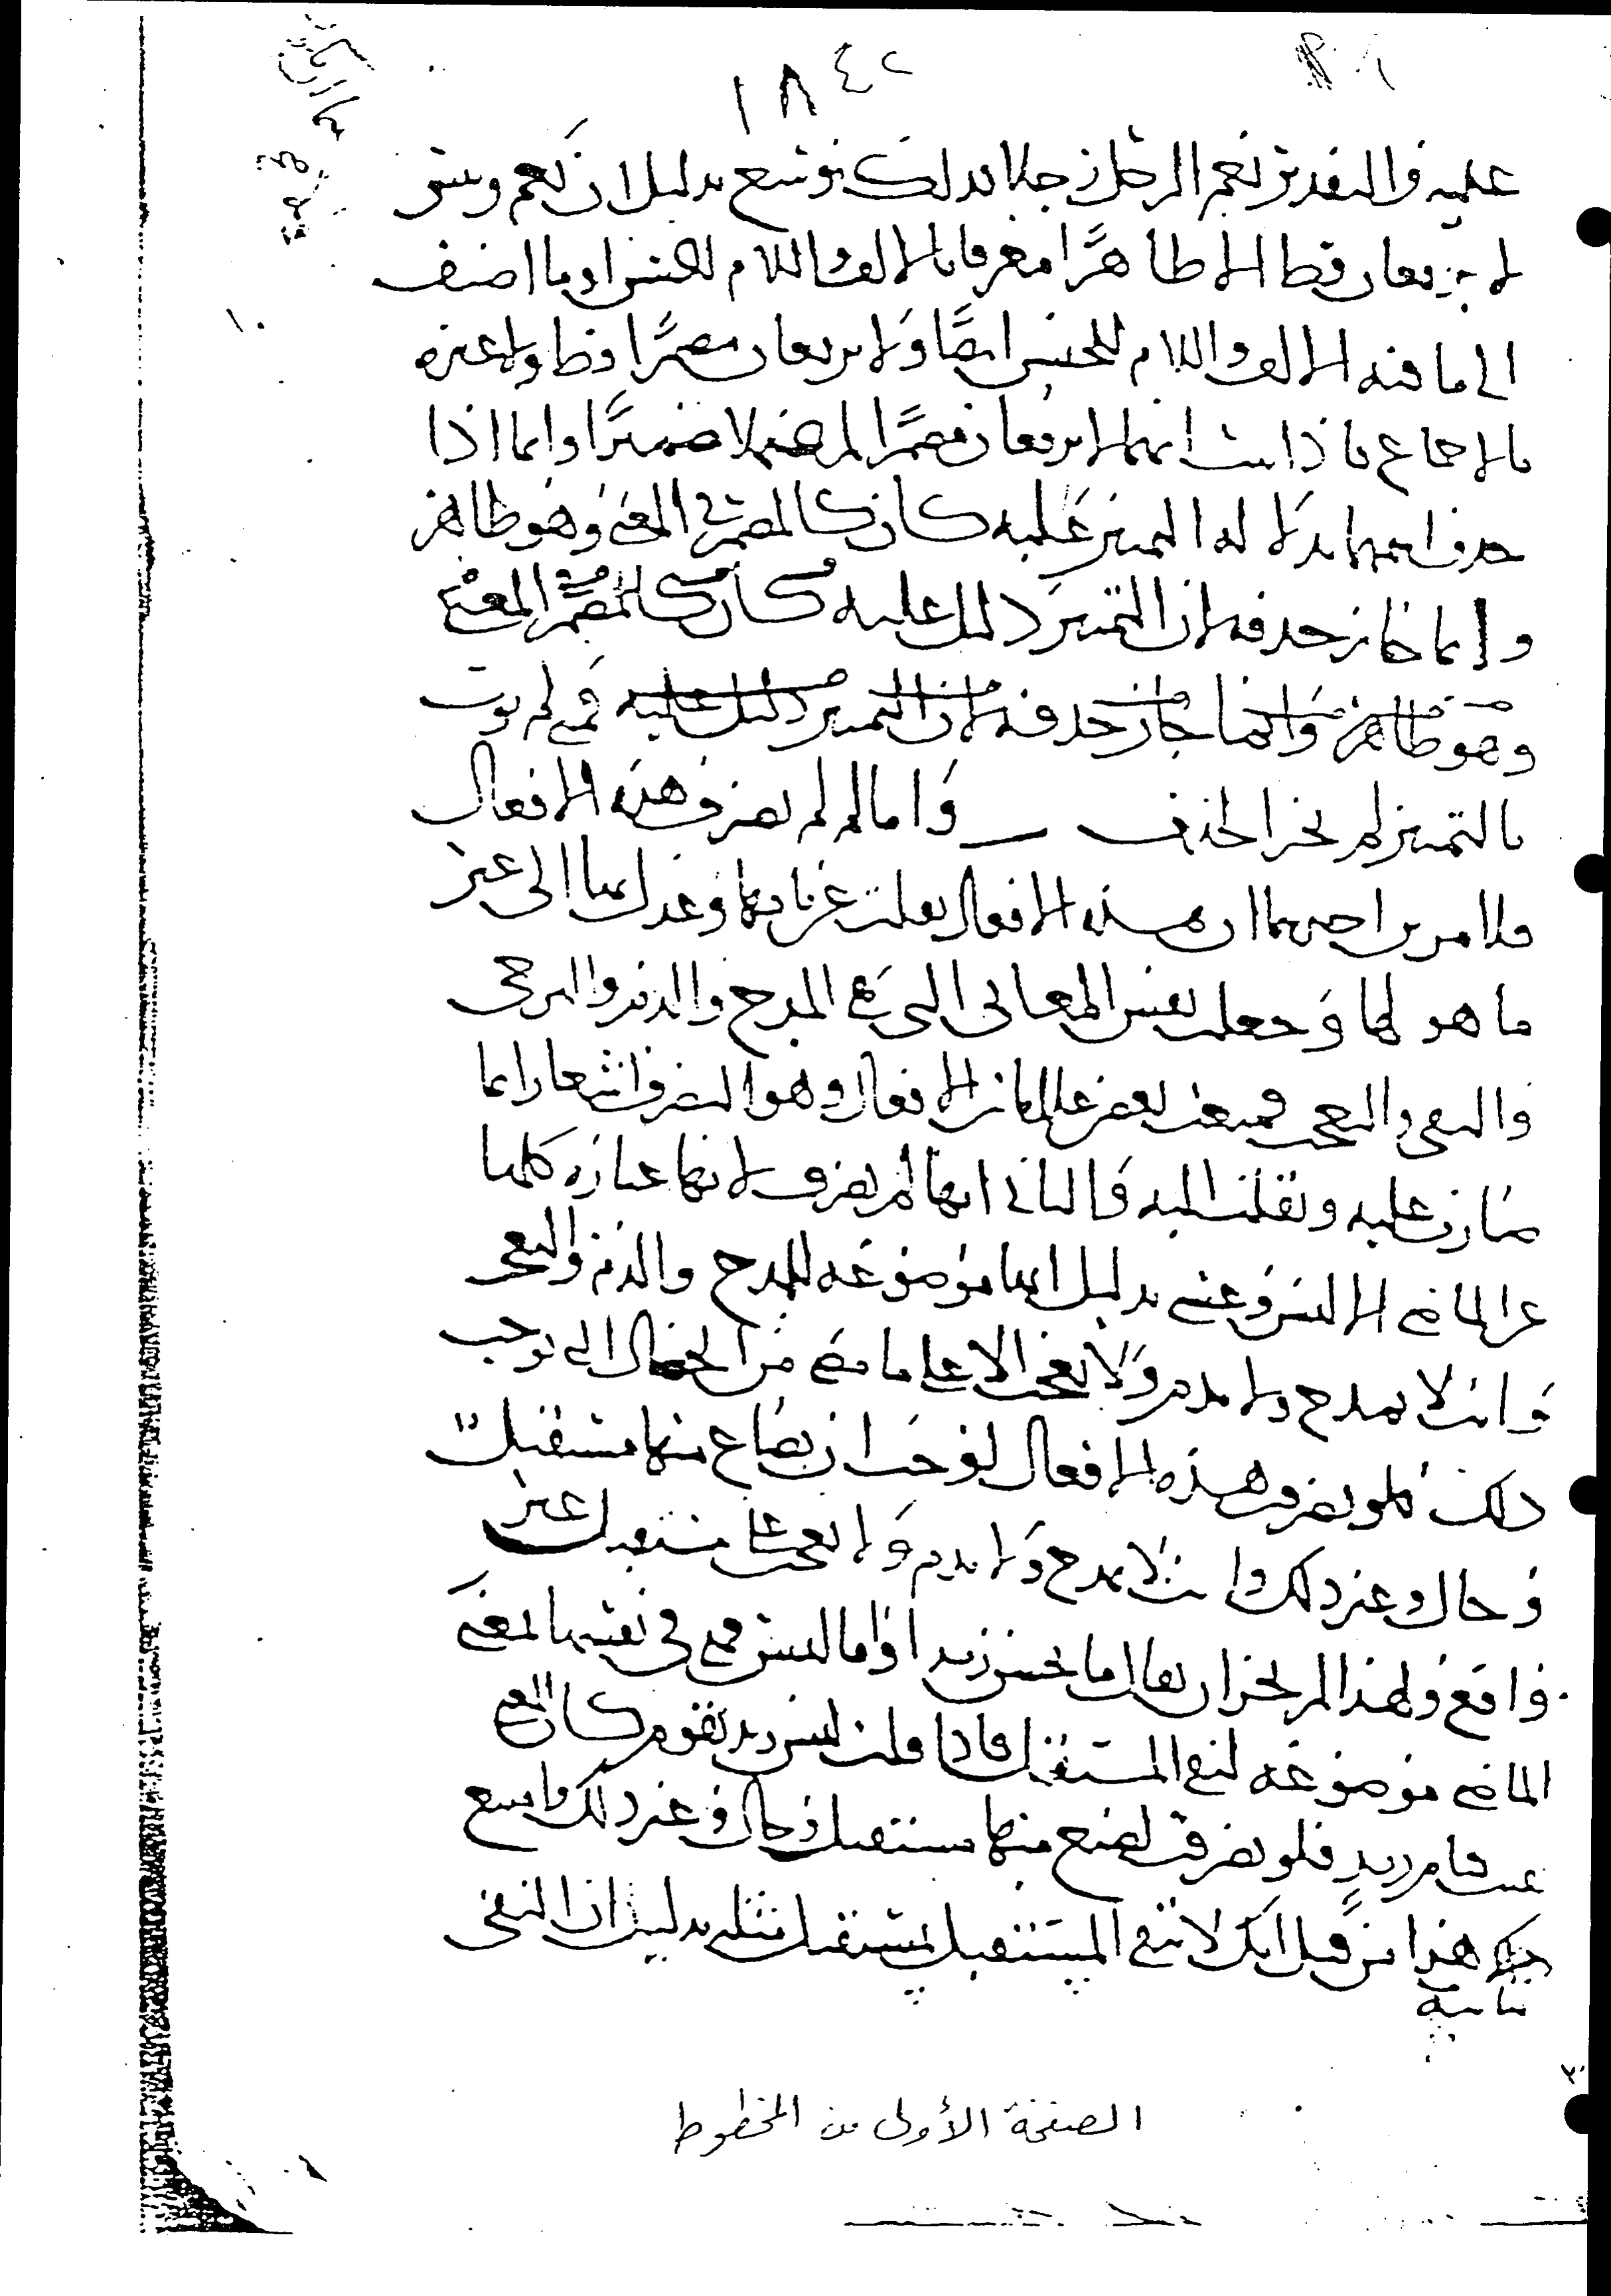 ١٨٤٢
عليه والتقدير نعم الرجل رجلا بذلك توسع بدليل ان نعم وبئس
لا يرفعان قط الا ظاهرًا معرفا بالالف واللام للجنس او ما اضيف
الى ما فيه الالف واللام للجنس ايضًا ولا يرفعان مضمرًا قط ولا غيره
بالاجماع فاذا ثبت انهما لا يرفعان مضمرًا لم يضمرا ضميرًا وانما اذا
حذف اسمهما بدلالة التمييز عليه كان كالمضمر في المعنى وهو ظاهر
وانما جاز حذفه لان التمييز دليل عليه كان كالمضمر المعنى
وهو ظاهر وانما جاز حذفه لان التمييز دليل عليه فمتى لم يوت
بالتمييز لم يجز الحذف واما لم لم تصرف هذه الافعال
فلامرين احدهما ان هذه الافعال نقلت عن بابها وعدل بها الى غير
ما هو لها وجعلت نفس المعاني التي هي المدح والذم والترجي
والنفي والتعجب فمنعت بعض علامات الافعال وهو التصرف اشعارا بما
صارت عليه ونقلت اليه والثاني انها لم تصرف لانها عبارة كلها
عن الماضي الا ليس وعسى بدليل انها موضوعة للمدح والذم والتعجب
وانت لا تمدح ولا تذم ولا تعجب الا على ما مضى من الخصال التي توجب
ذلك فلو تصرفت هذه الافعال لوجب ان يصاغ منها مستقبل
وحال وغير ذلك وانت لا تمدح ولا تذم ولا تعجب مستقبل غير
واقع ولهذا لم يجز ان يقال ما يحسن زيدا واما ليس فهي في نفسها بمعنى
الماضي موضوعة لنفي المستقبل فاذا قلت ليس زيد يقوم كان النفي
عن قيام زيدٍ فلو تصرفت لصيغ منها مستقبل وحال وغير ذلك وامتنع
هذا من قبل انك لا تنفي المستقبل بمستقبل مثله بدليل ان النفي
ثانية
الصفحة الأولى من المخطوط